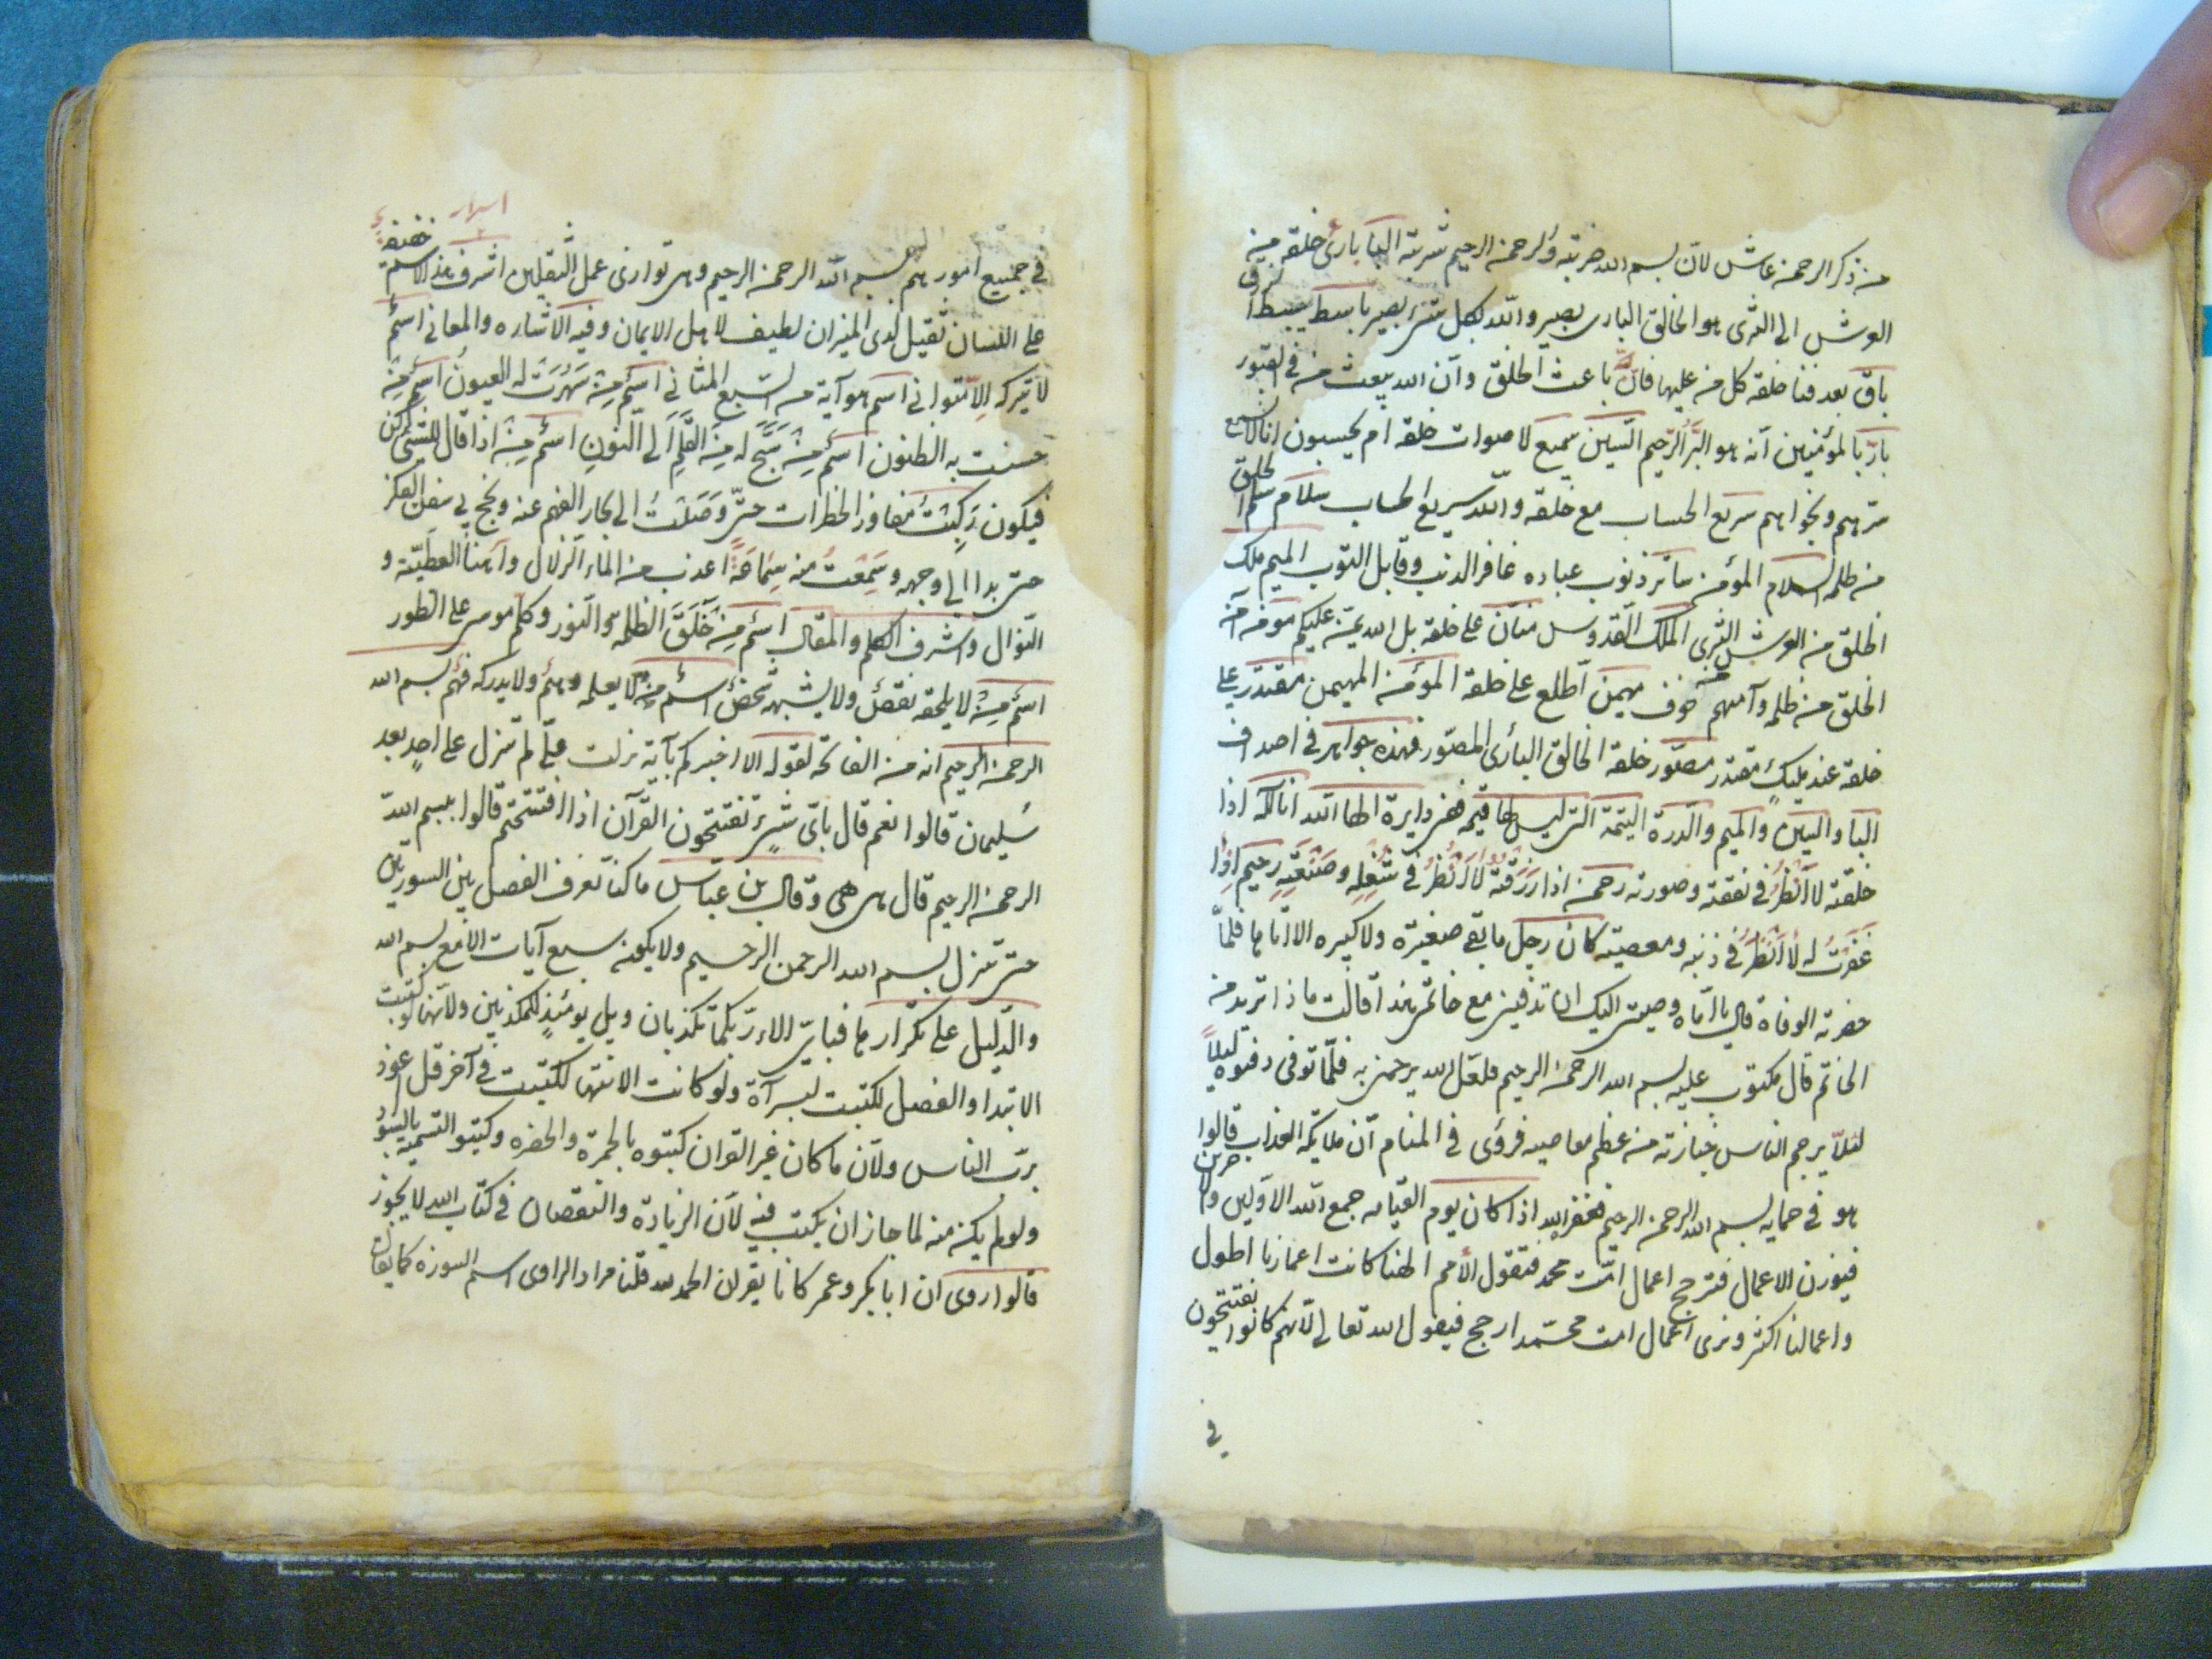 من ذكر الرحمن عاش لان بسم الله ضربته والرحمن الرحيم شربته البا بارئ خلقه من
العرش الى الثرى هو الخالق البارى بصير والله بكل شئ بصير باسط يبسط الرزق
باق بعد فنا خلقه كل من عليها فان باعث الخلق وان الله يبعث من في القبور
بارّ بالمؤمنين انه هو البَرُّ الرّحيم السّين سميع لاصوات خلقه ام يحسبون انا لا نسمع
سرهم ونجواهم سريع الحساب مع خلقه والله سريع الحساب سلام سلم الخلق
من ظلمه السلام المؤمن ساتر ذنوب عباده غافر الذنب وقابل التوب الميم ملك
الخلق من العرش الى الثرى الملك القدوس منان على خلقه بل الله يمن عليكم مؤمن آمن
الخلق من ظلمه وآمنهم من خوف مهيمن اطلع على خلقه المؤمن المهيمن مقتدر على
خلقه عند مليكٍ مقتدر مصوّر خلقه الخالق البارى المصوّر فهذه جواهر في اصداف
البا والسين والميم والدرة اليتيمة التى ليس لها قيمه فهى دايرة الها الله انا الله اذا
خلقته لا اَنظُرُ في نفقته وصورته رحمن اذا رَزَقته لا اَنظُرُ في شُغلِهِ وصَنعَتِه رحيم اذا
غفرتُ له لا اَنظُرُ في ذنبه ومعصيته كان رجل ما بقى صغيرة ولا كبيره الا اتاها فلمّا
حضرته الوفاة قال يا امّاه وصيتى اليك ان تدفنين مع خاتمى هذا قالت ماذا تريد من
الخاتم قال مكتوب عليه بسم الله الرحمن الرحيم فلعل الله يرحمنى به فلمّا توفى دفنوه ليلاً
لئلاّ يرجم الناس جنازته من عظم معاصيه فرؤى في المنام ان ملايكة العذاب قالوا
هو في حمايه بسم الله الرحمن الرحيم فغفر له اذا كان يوم القيامه جمع الله الاولين والآخرين
فيوزن الاعمال فترجح اعمال امّت محمد فتقول الأمم الهنا كانت اعمارنا اطول
واعمالنا اكثر ونرى اعمال امت محمّد ارجح فيقول الله تعالى لانهم كانوا يفتتحون
في
اسرار
في جميع امورهم بسم الله الرحمن الرحيم وهى توازى عمل الثقلين اشرف هذا الاسم خفيفة
على اللسان ثقيل لدى الميزان لطيف لاهل الايمان وفيه الاشاره والمعانى اسمٌ
لا يتركه الا متوانى اسم هو آية من السّبع المثانى اسمٌ من سَهرَت له العيونُ اسمٌ من
حسنت به الظنون اسمٌ من سَبَّح له من القلم الى النونِ اسمٌ من اذا قال للشئ كن
فيكون رَكِبتُ مفاوز الخطرات حتّى وصَلتُ الى بحار الفهم عنه ولجج بى سفن الفكر
حتى بدا لى وجهه وسَمِعتُ منه سَماعَةً اعذب من الماء الزلال وآهنا العطيّه و
النوال واشرف الكلم والمقال اسم من خَلَقَ الظلمه والنور وكلم موسى على الطور
اسم من لا يلحقه نقص ولا يشبهه شخص اسم من لا يعلمه وهم ولا يدركه فهم بسم الله
الرحمن الرحيم انه من الفاتحة لقوله الا اخبركم بآية نزلت علىّ لم تنزل على احدٍ بعد
سُليمان قالوا نعم قال باى شئٍ تفتتحون القرآن اذا افتتحتم قالوا ببسم الله
الرحمن الرحيم قال هى هى وقال بن عباس ما كنا نعرف الفصل بين السورتين
حتى تنزل بسم الله الرحمن الرحيم ولا يكون سبع آيات الا مع بسم الله
والدليل على تكرارها فباى الاء ربكما تكذبان ويل يومئذٍ للمكذبين ولانها لو كتبت
الابتدا والفصل لكتبت لبرآة ولو كانت الانتها لكتبت في آخر قل اعوذ
برب الناس ولان ما كان غير القران كتبوه بالحمرة والخضره وكتبو التسميه بالسود
ولو لم يكن منه لما جاز ان يكتب فيه لان الزيادة والنقصان في كتاب الله لا يجوز
قالوا روى ان ابا بكر وعمر كانا يقران الحمد لله قلنا مراد الراوى اسم السورة كما يقال